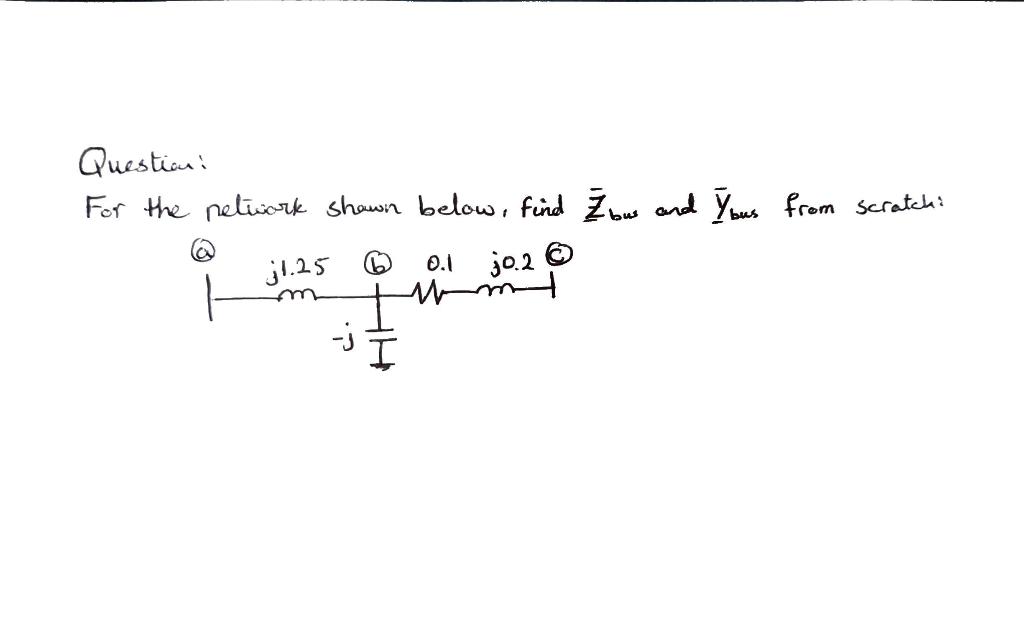 Question:
For the network shown below, find Z̄bus and Ȳbus from scratch:
ⓐ j1.25 ⓑ 0.1 j0.2 ⓒ
-j